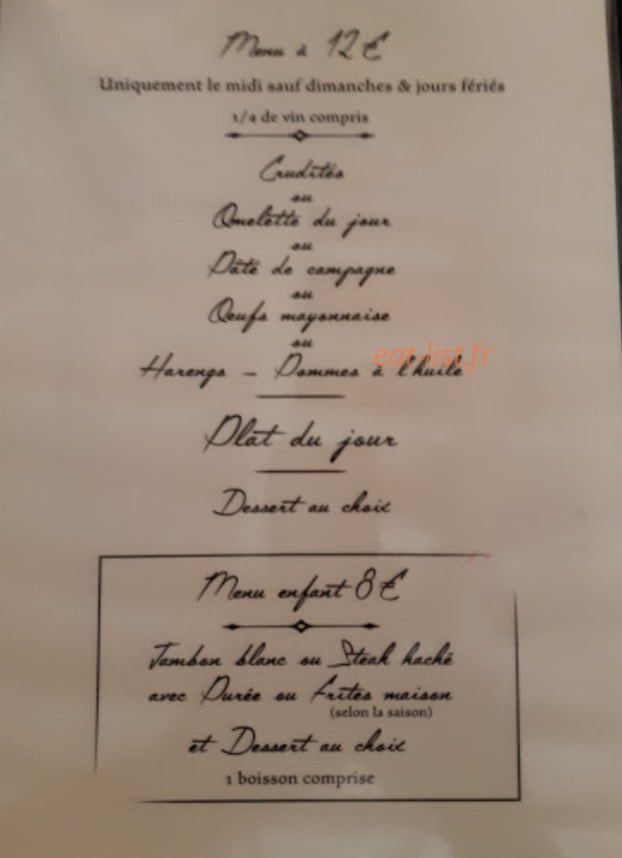 Menu à 12 €
Uniquement le midi sauf dimanches & jours fériés
1/4 de vin compris
Crudités
ou
Omelette du jour
ou
Pâté de campagne
ou
Oeufs mayonnaise
ou
Harengs - Pommes à l'huile
eat-list.fr
Plat du jour
Dessert au choix
Menu enfant 8 €
Jambon blanc ou Steak haché
avec Purée ou Frites maison
(selon la saison)
et Dessert au choix
1 boisson comprise